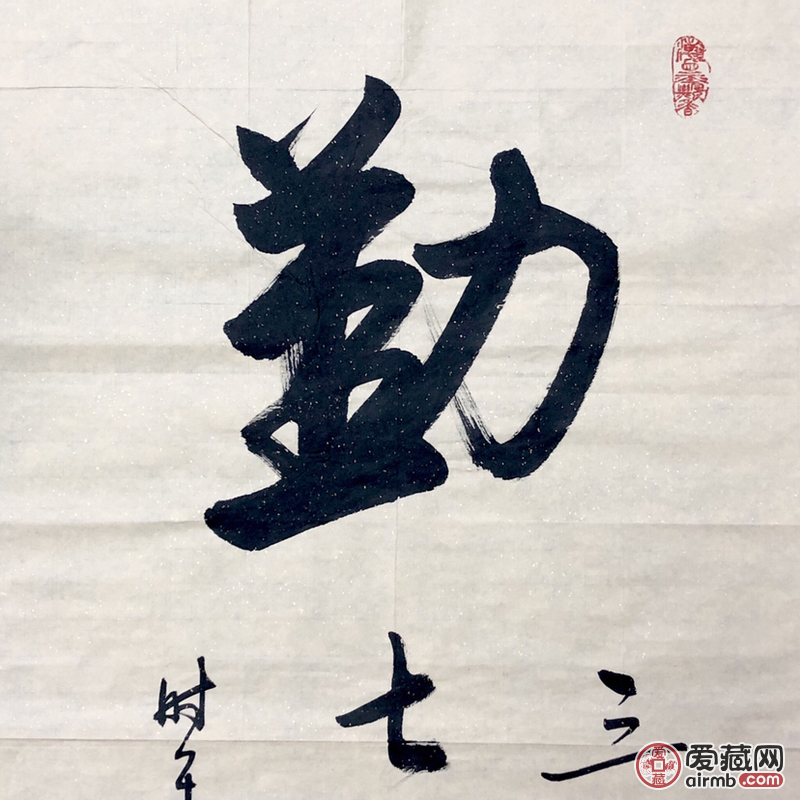 勤
三
七
时年
爱藏网
airmb.com